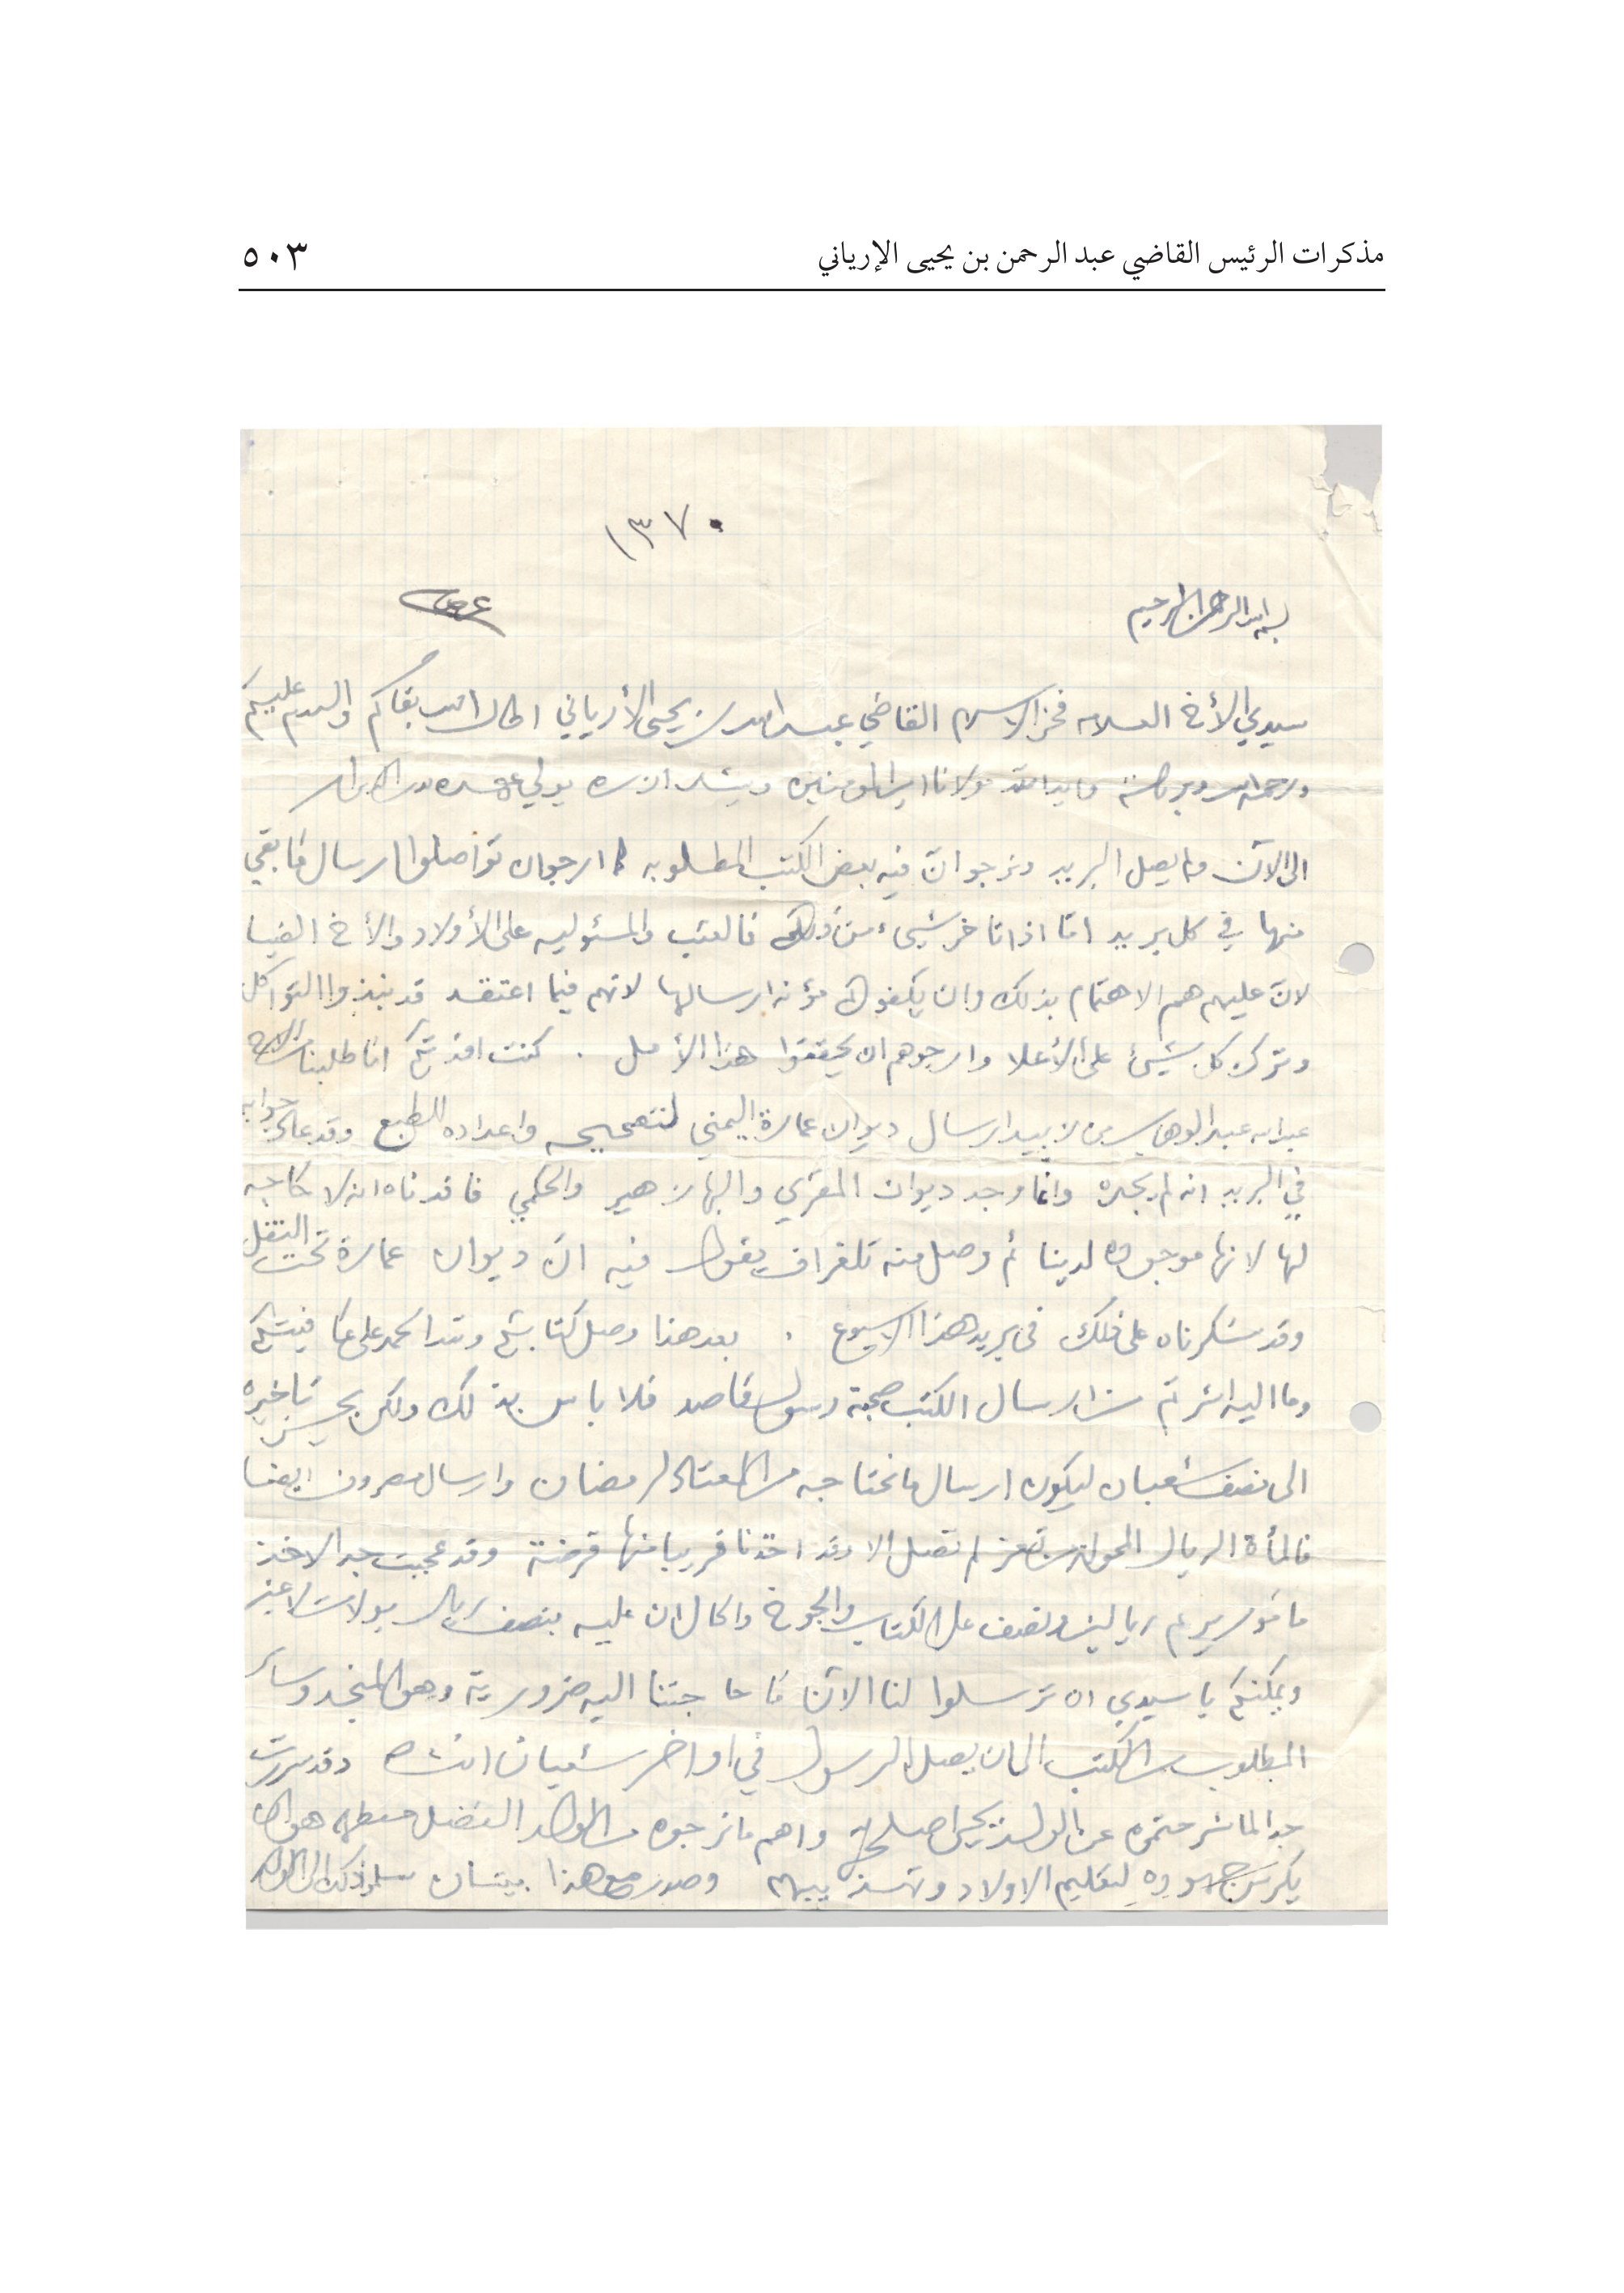 مذكرات الرئيس القاضي عبد الرحمن بن يحيى الإرياني
٥٠٣
١٣٧٠
بسم الله الرحمن الرحيم
سيدي الأخ العلامه فخر الاسلام القاضي عبدالله بن يحيى الأرياني اطال الله بقاكم والسلام عليكم
ورحمة الله وبركاته مولانا امير المؤمنين
الى الآن ولم يصل البريد ونرجو انّ فيه بعض الكتب المطلوبه كما ارجو ان تواصلوا ارسال ما بقي
منها في كل بريد امّا اذا تاخر شيىء من ذلك فالعتب والمسئوليه على الأولاد والأخ
لانّ عليهم هم الاهتمام بذلك وان يكفوكم مؤنة ارسالها لانهم فيما اعتقد قد نبذوا التواكل
وترك كل شيئ على الأعلا وارجوهم ان يحققوا هذا الأمل . كنت افدتكم انا طلبنا من الاخ
عبدالله عبدالوهاب من زبيد ارسال ديوان عمارة اليمني لتصحيحه واعداده للطبع وقد عاد جوابه
في البريد انه لم يجده وانما وجد ديوان المقري والبها زهير والحكمي فافدناه انه لا حاجه
لها لانها موجوده لدينا ثم وصل منه تلغراف يقول فيه انّ ديوان عمارة تحت النقل
وقد شكرناه على ذلك في بريد هذا الاسبوع . بعد هذا وصل كتابكم ولله الحمد على عافيتكم
وما اليه اشرتم من ارسال الكتب صحبة رسول قاصد فلا باس بذلك ولكن يحسن تاخيره
الى نصف شعبان ليكون ارسال ما نحتاجه من المعتاد لرمضان وارسال مصروف ايضا
فالمأة الريال المحوله من تعز لم تصل الا وقد اخذنا قريبا منها قرضة وقد عجبت جدا لاخذ
مامور يريم ريالين ونصف على الكتاب والجوخ والحال ان عليه بنصف ريال بولات لا غير
ويمكنكم يا سيدي ان ترسلوا لنا الآن ما حاجتنا اليه ضرورية وهو المنجد وسائر
المطلوب من الكتب الى ان يصل الرسول في اواخر شعبان انشاه وقد سررت
جدا لما شرحتموه عن الولد يحيى اصلحه الله واهم ما نرجوه من الولد الفضل حفظه الله هو ان
يكرس جهوده لتعليم الاولاد وتهذيبهم وصدر مع هذا بيتان